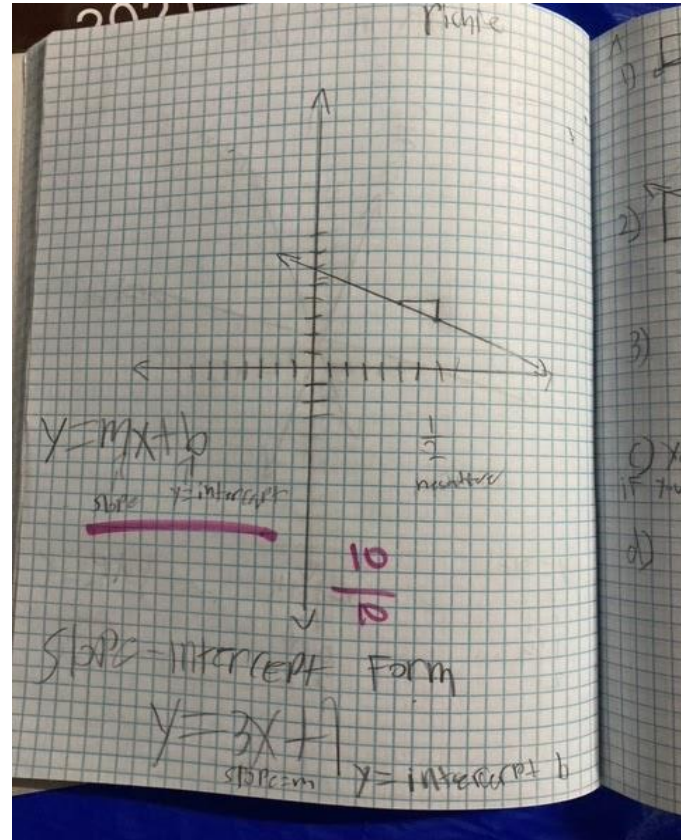 2021
richie
y=mx+b
slope y=intercept
1/2
negative
10
/2
Slope-intercept Form
y=3x+7
slope=m y=intercept b
1)
2)
3)
c)
if you
d)